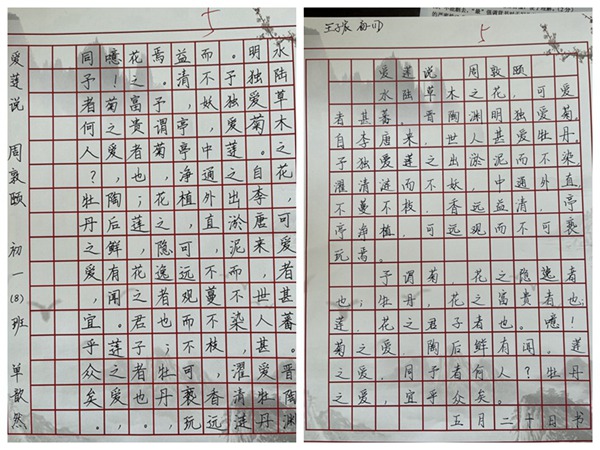 5
水陆草木之花,可爱者甚蕃。晋陶渊
明独爱菊。自李唐来,世人甚爱牡丹
。予独爱莲之出淤泥而不染,濯清涟
而不妖,中通外直,不蔓不枝,香远
益清,亭亭净植,可远观而不可亵玩
焉。予谓菊,花之隐逸者也;牡丹,
花之富贵者也;莲,花之君子者也。
噫!菊之爱,陶后鲜有闻。莲之爱,
同予者何人?牡丹之爱,宜乎众矣。
爱莲说 周敦颐 初一(8)班
5
爱莲说 周敦颐
水陆草木之花,可爱
者甚蕃。晋陶渊明独爱菊。
自李唐来,世人甚爱牡丹。
予独爱莲之出淤泥而不染,
濯清涟而不妖,中通外直,
不蔓不枝,香远益清,亭
亭净植,可远观而不可亵
玩焉。
予谓菊,花之隐逸者
也;牡丹,花之富贵者也;
莲,花之君子者也。噫!
菊之爱,陶后鲜有闻。莲
之爱,同予者何人?牡丹
之爱,宜乎众矣。
五月二十日书